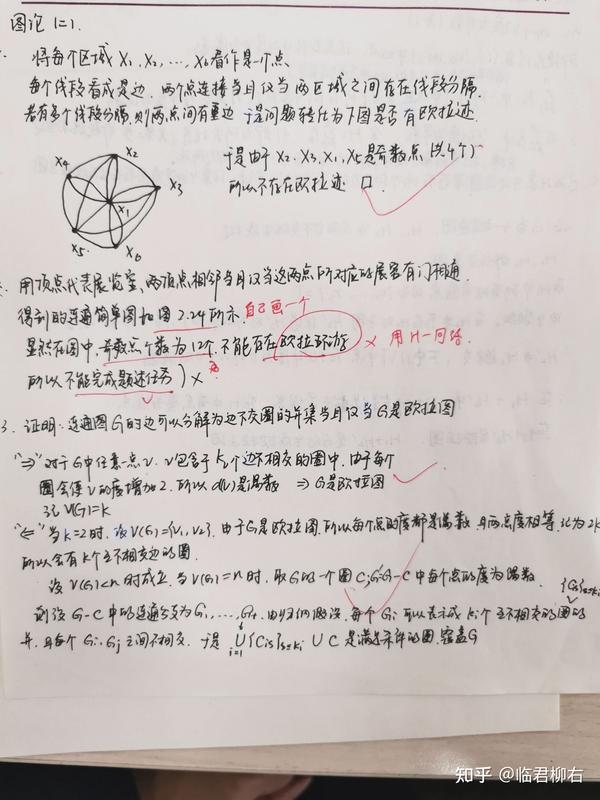 图论 12.1.
将每个区域 X₁, X₂, ..., X₆看作是一个点.
每个线段看成是边, 两个点连接当且仅当两区域之间存在线段分隔.
若有多个线段分隔, 则两点间有重边 于是问题转化为下图是否有欧拉迹.
于是由于 X₂, X₃, X₁, X₅是奇数点(共4个)
所以不存在欧拉迹 □.
X₂
X₄
X₃
X₁
X₅
X₆
用顶点代表展览室, 两顶点相邻当且仅当这两点所对应的展室有门相通.
得到的连通简单图如图 2.24所示. 自己画一个
显然在图中, 奇数点个数为12个, 不能存在欧拉环游 × 用H-回路
所以不能完成题述任务 ×
3. 证明: 连通图G的边可以分解为边不交圈的并集当且仅当G是欧拉图
"⇒" 对于G中任意一点v. v包含于k个边不相交的圈中. 由于每个
圈会使v的度增加2, 所以d(v)是偶数 ⇒ G是欧拉图
记 V(G)=k
"⇐" 当k=2时, 设V(G)={v₁,v₂}, 由于G是欧拉图, 所以每个点的度都是偶数, 且两点度相等, 记为2k
所以会有k个互不相交边的圈.
设V(G)<n时成立, 当V(G)=n时, 取G的一个圈C, G'=G-C中每个点的度为偶数.
则设G-C中的连通分支为G₁, ..., Gₜ, 由归纳假设, 每个Gᵢ可以表示成kᵢ个互不相交的圈的
并, 且每个Gᵢ, Gⱼ之间不相交. 于是 ∪ᵢ₌₁ {Cᵢₛ}ₛ≤ₖᵢ ∪ C 是满足条件的圈, 覆盖G
知乎 @临君柳右